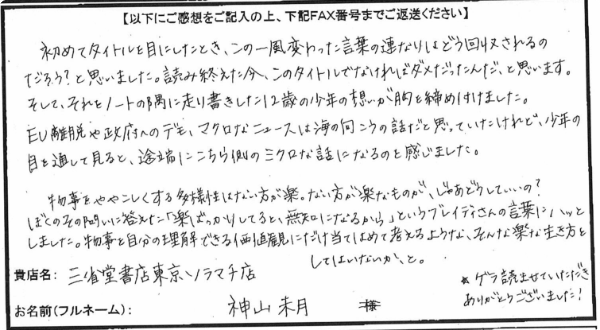 【以下にご感想をご記入の上、下記FAX番号までご返送ください】
初めてタイトルを目にしたとき、この一風変わった言葉の連なりはどう回収されるの
だろう?と思いました。読み終えた今、このタイトルでなければダメだったんだ、と思います。
そして、それをノートの隅に走り書きした12歳の少年の想いが胸を締め付けました。
EU離脱や政府へのデモ、マクロなニュースは海の向こうの話だと思っていたけれど、少年の
目を通して見ると、途端にこちら側のミクロな話になるのを感じました。
物事をややこしくする多様性はない方が楽。ない方が楽なものが、じゃあどうしていいの?
ぼくのその問いに答えた「楽ばっかりしてると、無知になるから」というブレイディさんの言葉にハッと
しました。物事を自分の理解できる価値観にだけ当てはめて考えるような、そんな楽な生き方を
してはいないか、と。
貴店名: 三省堂書店東京ソラマチ店
★ゲラ読ませていただき
ありがとうございました!
お名前(フルネーム): 神山 未月 様